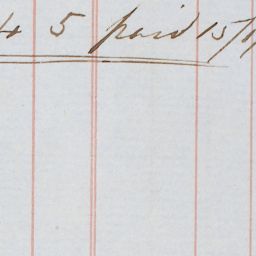 4 5 paid 15/